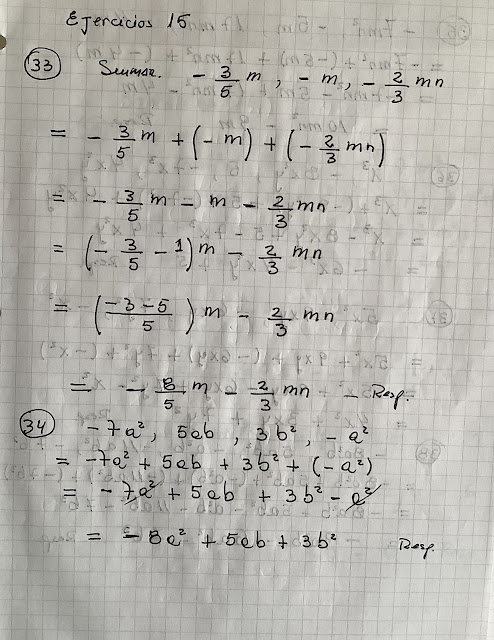 Ejercicios 15
33 Sumar. - 3/5 m, - m, - 2/3 mn
= - 3/5 m + (- m) + (- 2/3 mn)
= - 3/5 m - m - 2/3 mn
= (- 3/5 - 1) m - 2/3 mn
= (-3-5/5) m - 2/3 mn
= - 8/5 m - 2/3 mn - Resp.
34 -7a², 5ab, 3b², -a²
= -7a² + 5ab + 3b² + (-a²)
= -7a² + 5ab + 3b² - a²
= -8a² + 5ab + 3b² Resp.